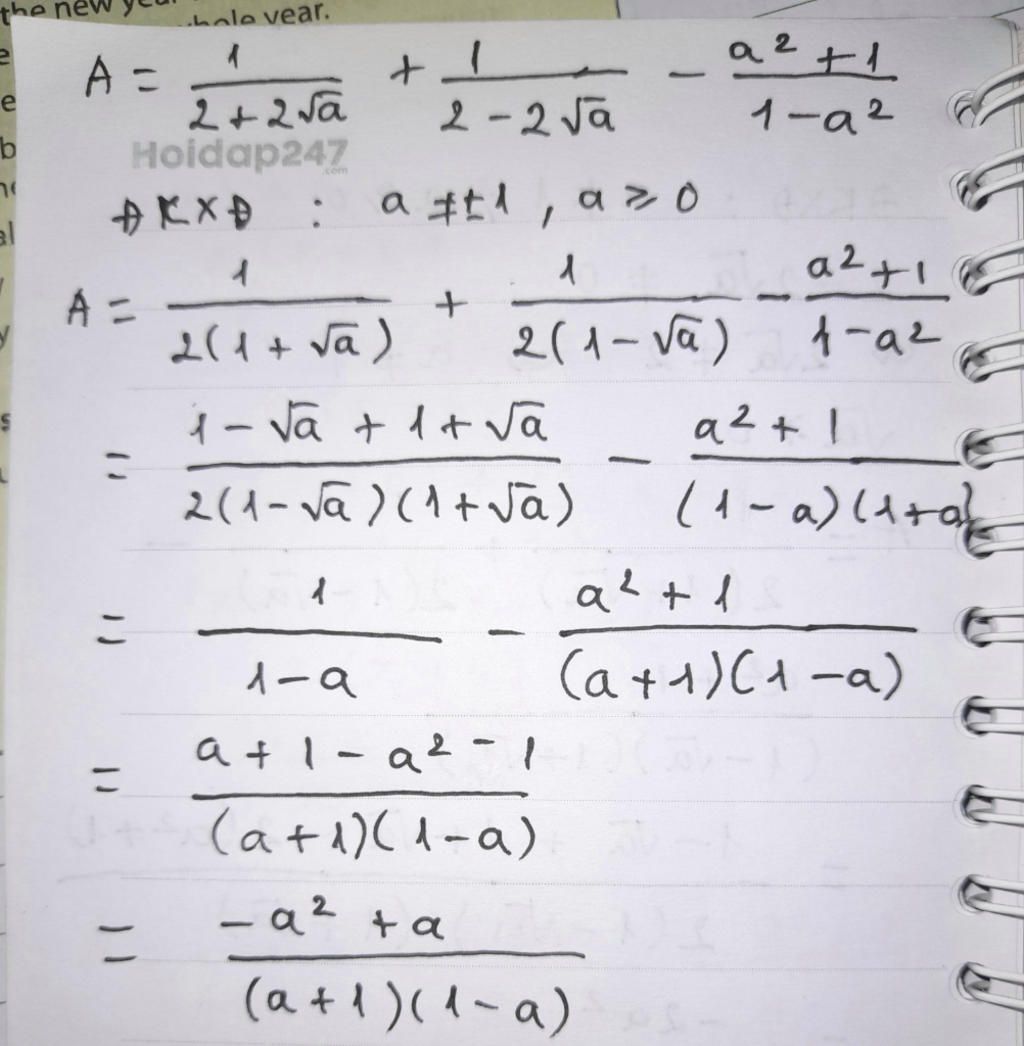 the new
whole year.
A = 1/(2 + 2√a) + 1/(2 - 2√a) - (a² + 1)/(1 - a²)
Hoidap247
.com
ĐKXĐ : a ≠ ±1, a ⩾ 0
A = 1/(2(1 + √a)) + 1/(2(1 - √a)) - (a² + 1)/(1 - a²)
= (1 - √a + 1 + √a)/(2(1 - √a)(1 + √a)) - (a² + 1)/((1 - a)(1 + a))
= 1/(1 - a) - (a² + 1)/((a + 1)(1 - a))
= (a + 1 - a² - 1)/((a + 1)(1 - a))
= (-a² + a)/((a + 1)(1 - a))